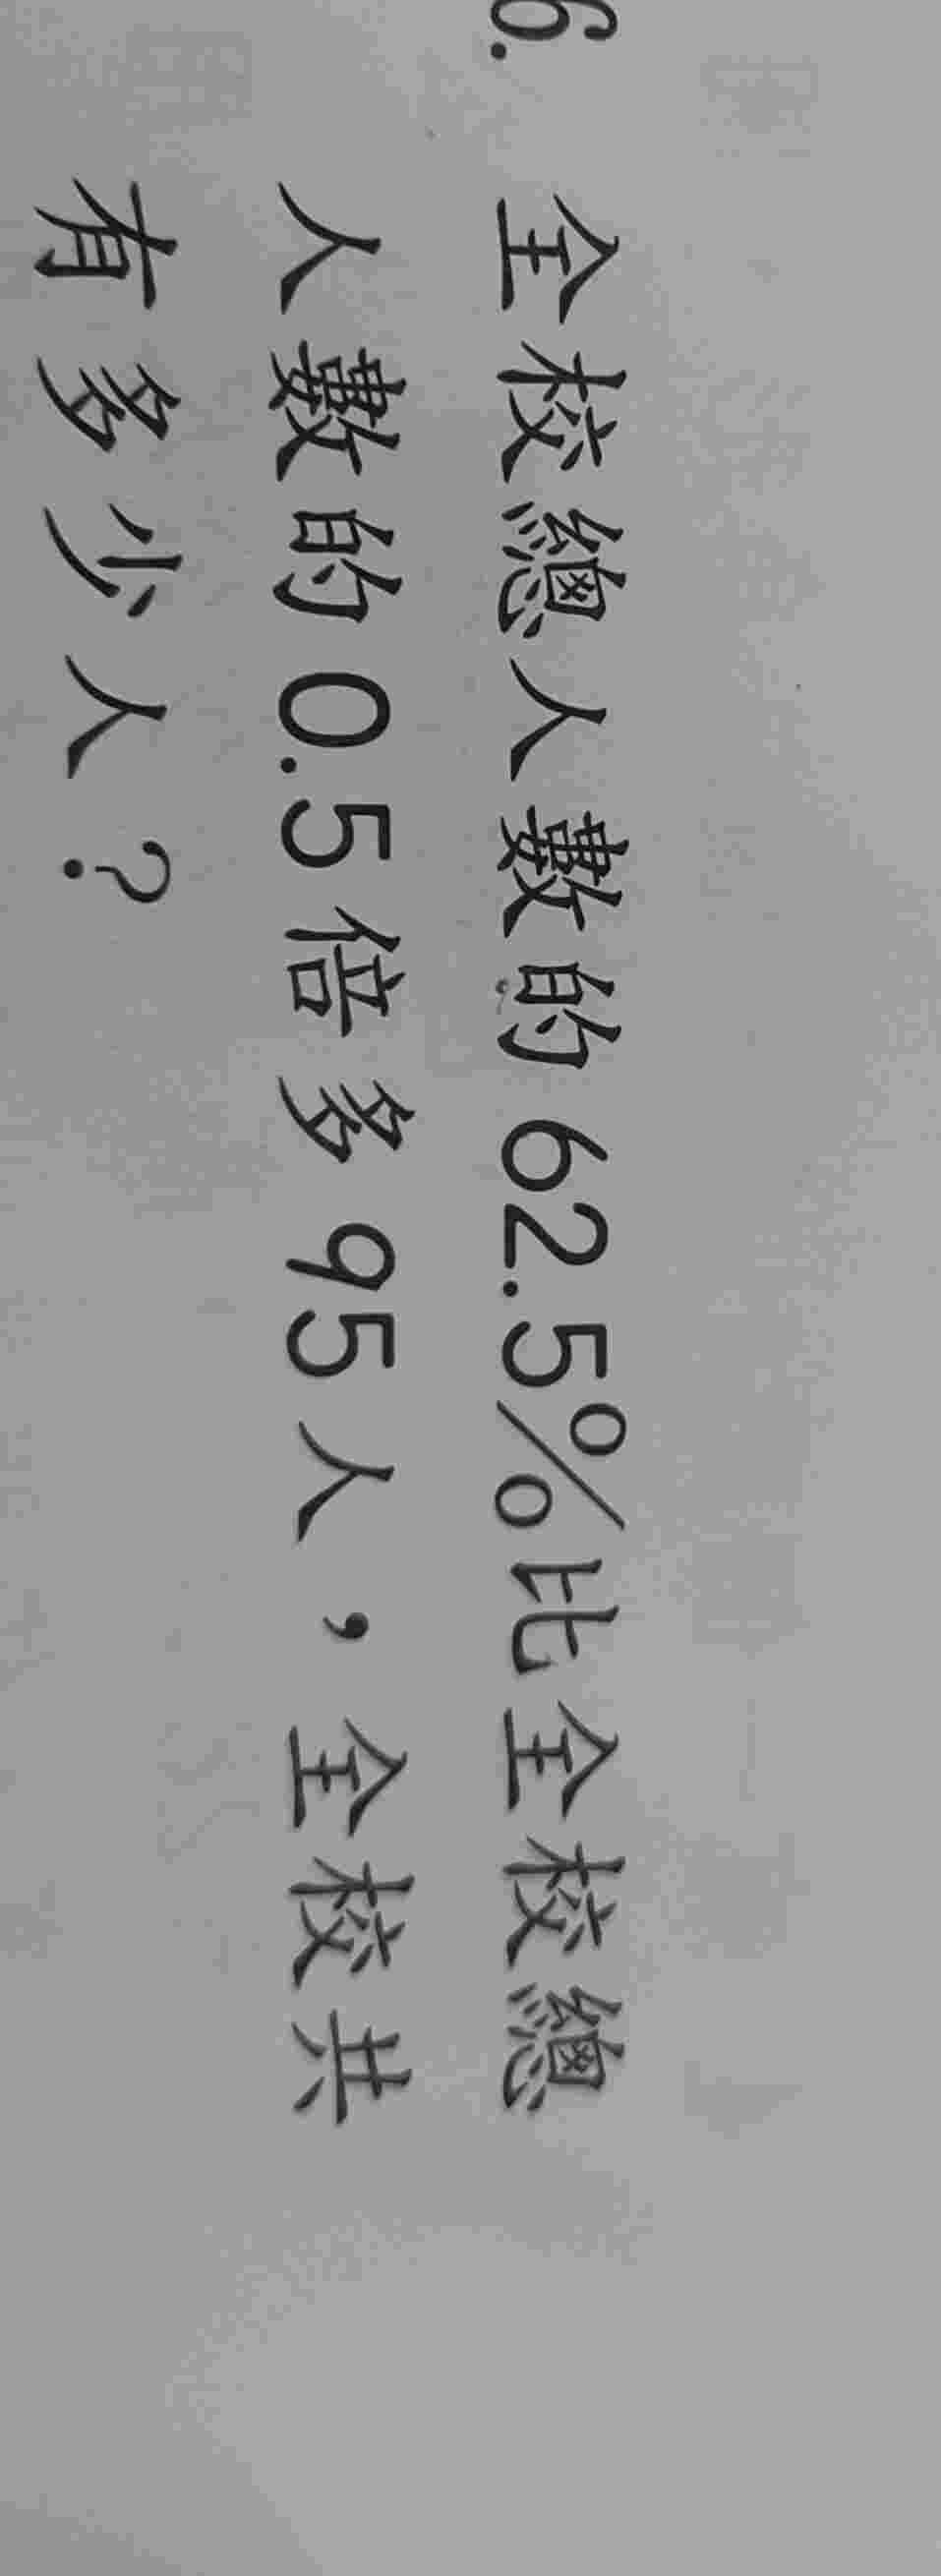 6. 全校總人數的62.5%比全校總
人數的0.5倍多95人，全校共
有多少人？